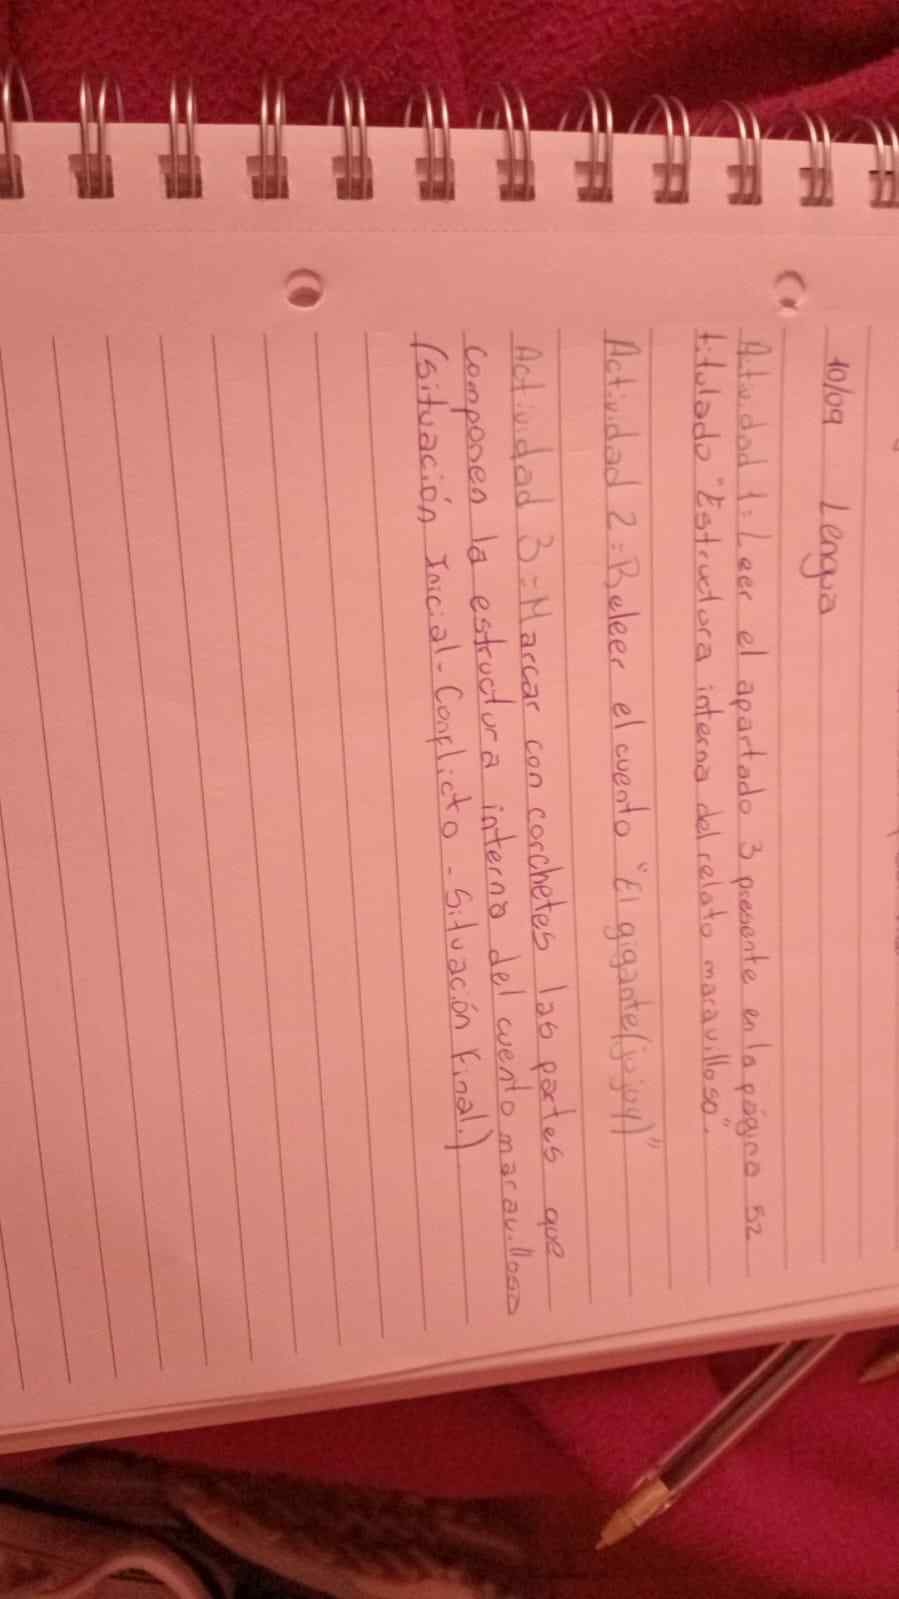 10/09 Lengua
Actividad 1: Leer el apartado 3 presente en la página 52
titulado "Estructura interna del relato maravilloso".
Actividad 2: Releer el cuento "El gigante (jujoy)"
Actividad 3: Marcar con corchetes las partes que
componen la estructura interna del cuento maravilloso
(Situación Inicial - Conflicto - Situación Final.)